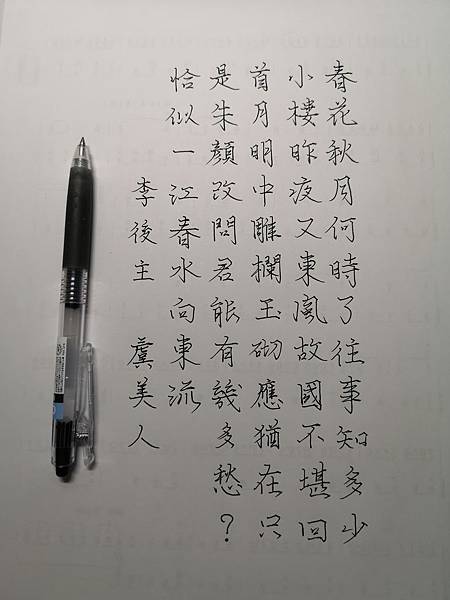 春花秋月何時了往事知多少
小樓昨夜又東風故國不堪回
首月明中雕欄玉砌應猶在只
是朱顏改問君能有幾多愁？
恰似一江春水向東流
李後主 虞美人